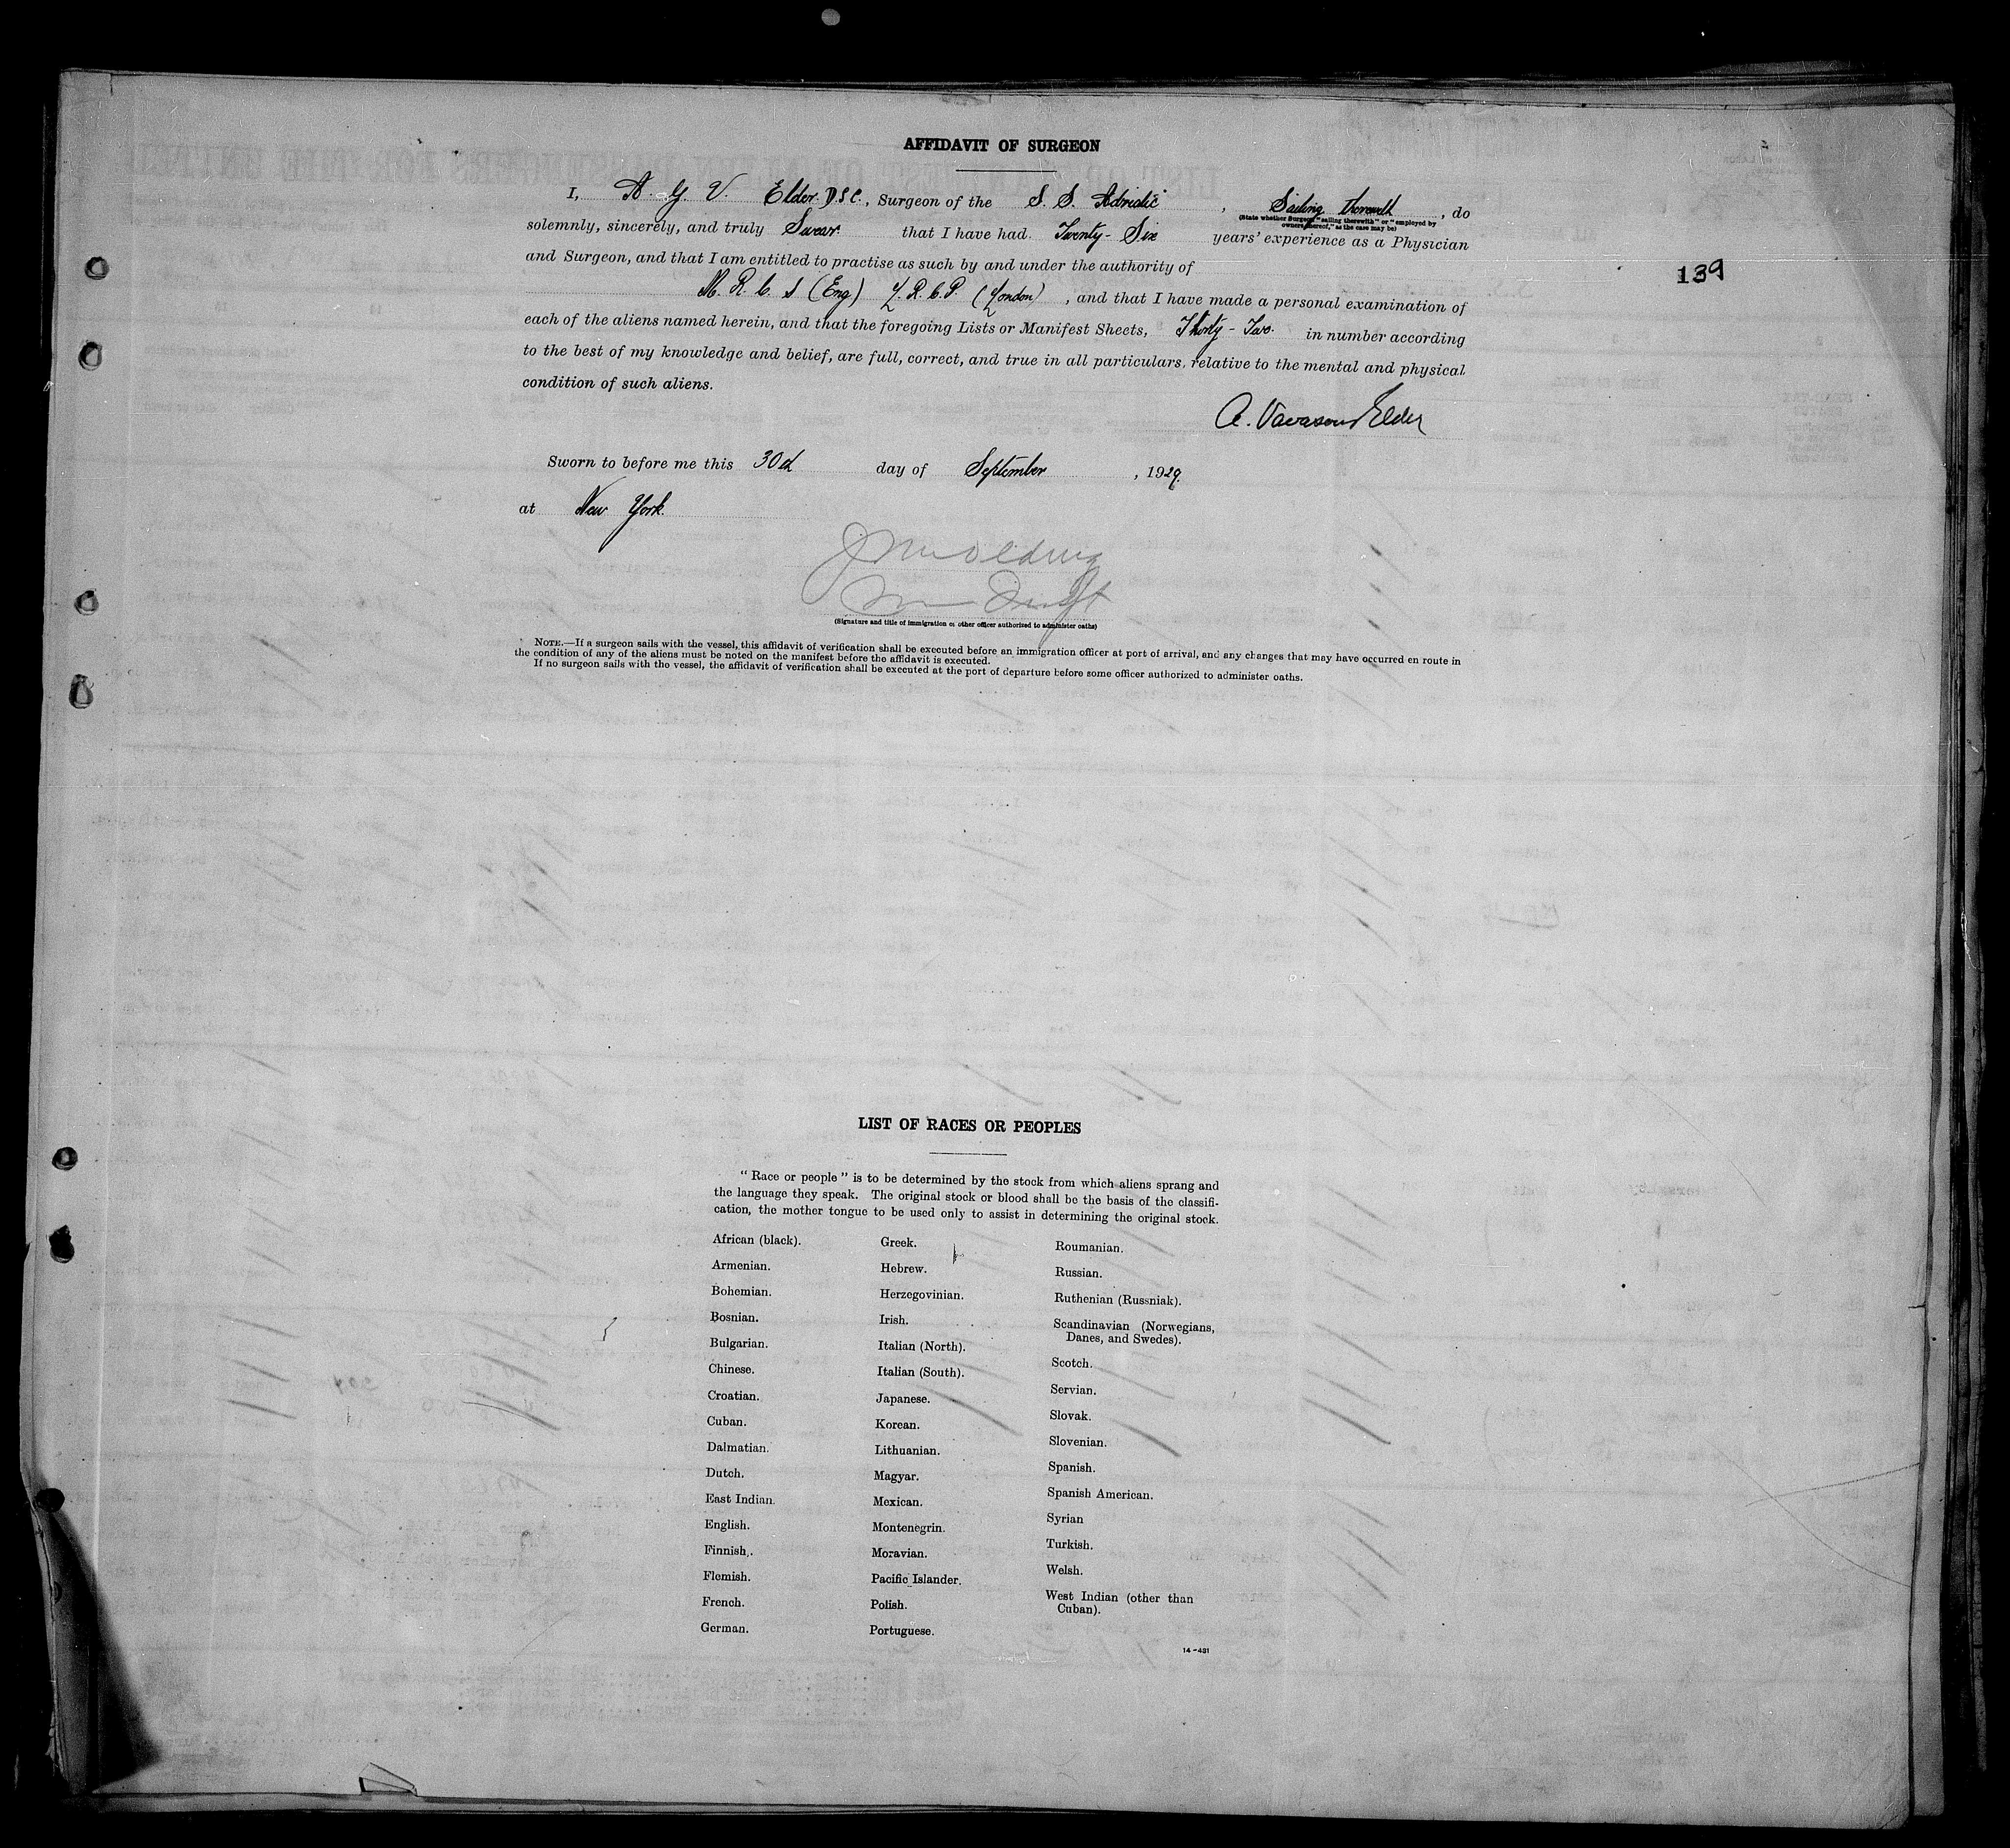 AFFIDAVIT OF SURGEON
I, A. G. V. Elder. D.S.C., Surgeon of the S. S. Adriatic, Sailing therewith, do
(State whether Surgeon "sailing therewith" or "employed by
owners thereof," as the case may be)
solemnly, sincerely, and truly Swear that I have had Twenty-Six years' experience as a Physician
and Surgeon, and that I am entitled to practise as such by and under the authority of
M. R. C. S (Eng) L. R. C. P. (London), and that I have made a personal examination of
139
each of the aliens named herein, and that the foregoing Lists or Manifest Sheets, Thirty-Two. in number according
to the best of my knowledge and belief, are full, correct, and true in all particulars, relative to the mental and physical
condition of such aliens.
A. Vavasour Elder
Sworn to before me this 30th day of September, 1929.
at New York.
(Signature and title of immigration or other officer authorized to administer oaths)
NOTE.—If a surgeon sails with the vessel, this affidavit of verification shall be executed before an immigration officer at port of arrival, and any changes that may have occurred en route in
the condition of any of the aliens must be noted on the manifest before the affidavit is executed.
If no surgeon sails with the vessel, the affidavit of verification shall be executed at the port of departure before some officer authorized to administer oaths.
LIST OF RACES OR PEOPLES
"Race or people" is to be determined by the stock from which aliens sprang and
the language they speak. The original stock or blood shall be the basis of the classifi-
cation, the mother tongue to be used only to assist in determining the original stock.
African (black).
Armenian.
Bohemian.
Bosnian.
Bulgarian.
Chinese.
Croatian.
Cuban.
Dalmatian.
Dutch.
East Indian.
English.
Finnish.
Flemish.
French.
German.
Greek.
Hebrew.
Herzegovinian.
Irish.
Italian (North).
Italian (South).
Japanese.
Korean.
Lithuanian.
Magyar.
Mexican.
Montenegrin.
Moravian.
Pacific Islander.
Polish.
Portuguese.
Roumanian.
Russian.
Ruthenian (Russniak).
Scandinavian (Norwegians,
Danes, and Swedes).
Scotch.
Servian.
Slovak.
Slovenian.
Spanish.
Spanish American.
Syrian
Turkish.
Welsh.
West Indian (other than
Cuban).
14-481